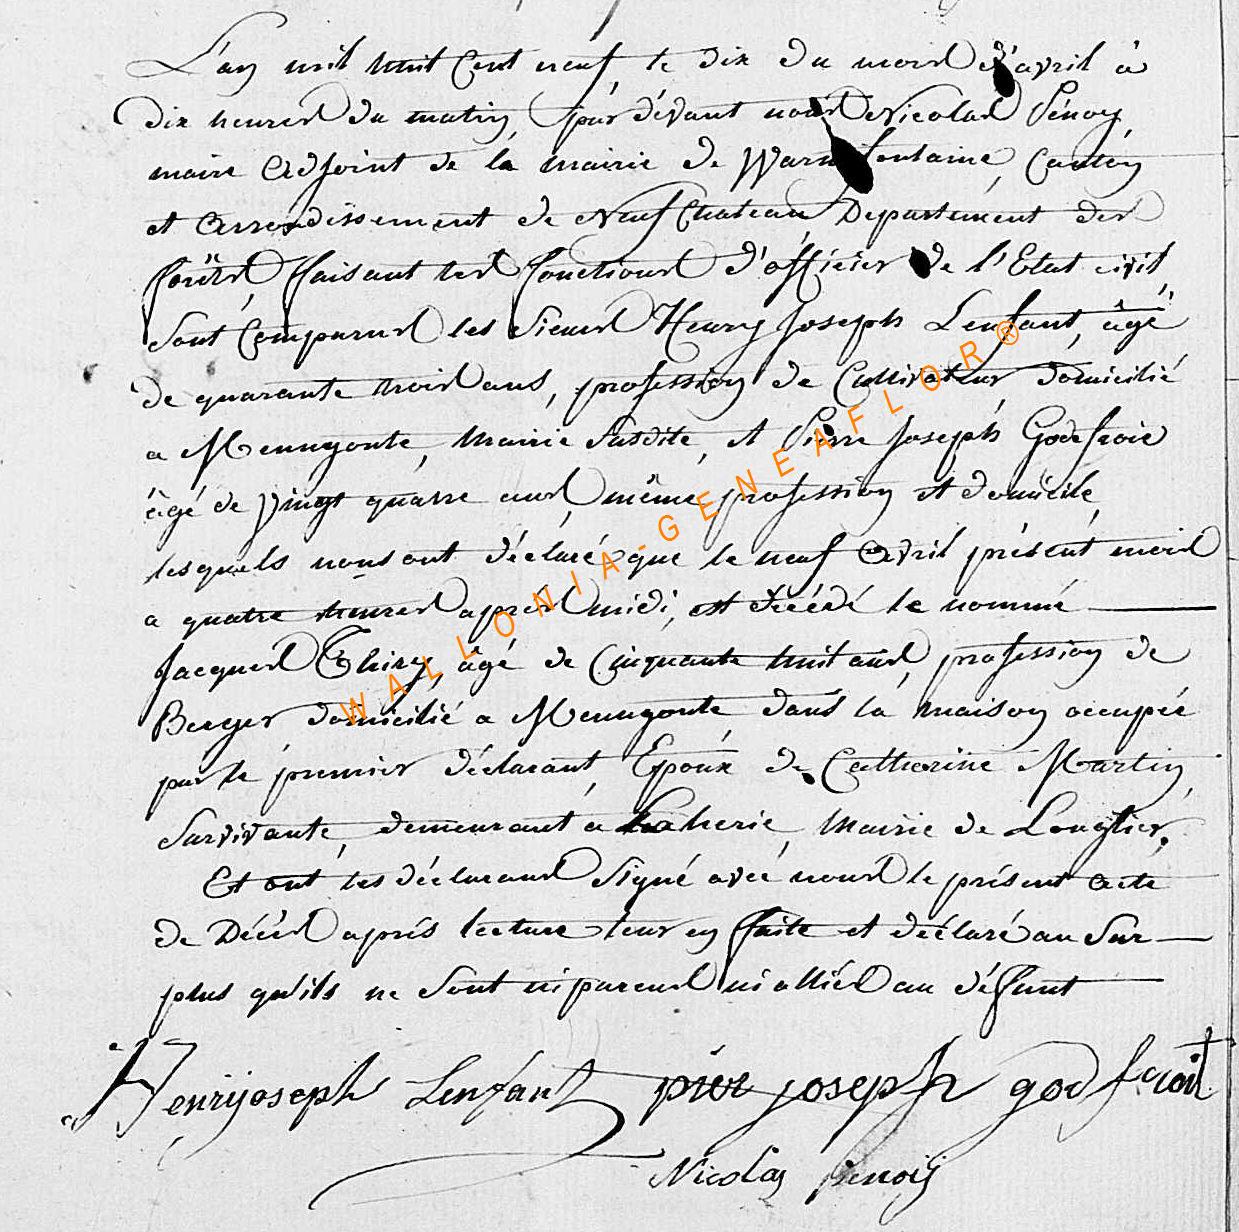 L'an mil huit cent neuf, le dix du mois d'avril à
dix heures du matin, par dévant nous Nicolas Pénoy,
maire adjoint de la mairie de Warmifontaine, Canton
et arrondissement de Neufchateau, Departement des
forêts, ffaisant les fonctions d'officier de l'Etat civil,
sont comparus les sieurs Henry Joseph Lenfant, âgé
de quarante trois ans, profession de Cultivateur domicilié
a Menugoute, Mairie susdite, et Pierre Joseph Godefroie
âgé de vingt quatre ans, même profession et domicile,
lesquels nous ont déclaré que le neuf avril présent mois
a quatre heures après midi, est décédé le nommé
Jacques Thiry, âgé de Cinquante huit ans, profession de
Berger domicilié a Menugoute dans la maison occupée
par le premier déclarant, Epoux de Catherine Martin
survivante, demeurant a Laherie, Mairie de Longlier.
Et ont les déclarans signé avec nous le présent acte
de Décès après lecture leur en faite et déclaré au sur
plus qu'ils ne sont ni parens ni alliés au défunt
Henrijoseph Lenfant pier joseph godfroit
Nicolas penoij
WALLONIA-GENEAFLOR®